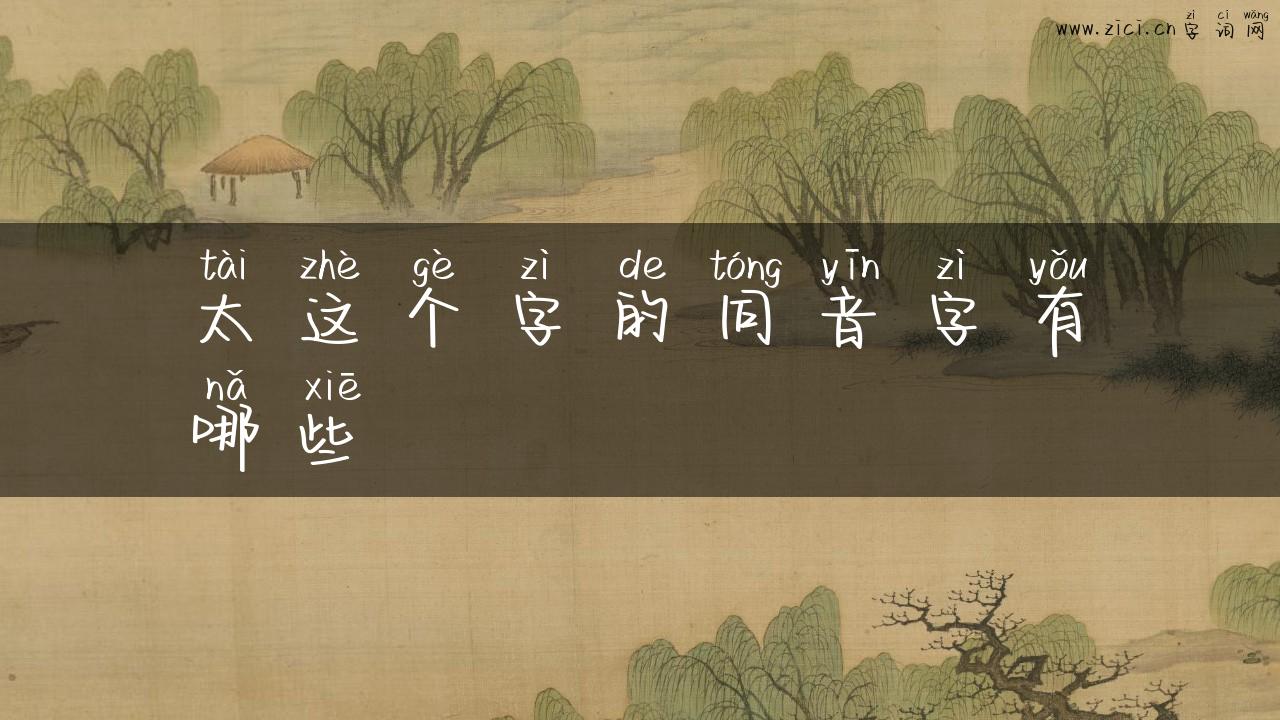 zì cí wǎng
www.zici.cn 字 词 网
tài zhè gè zì de tóng yīn zì yǒu
太 这 个 字 的 同 音 字 有
nǎ xiē
哪 些